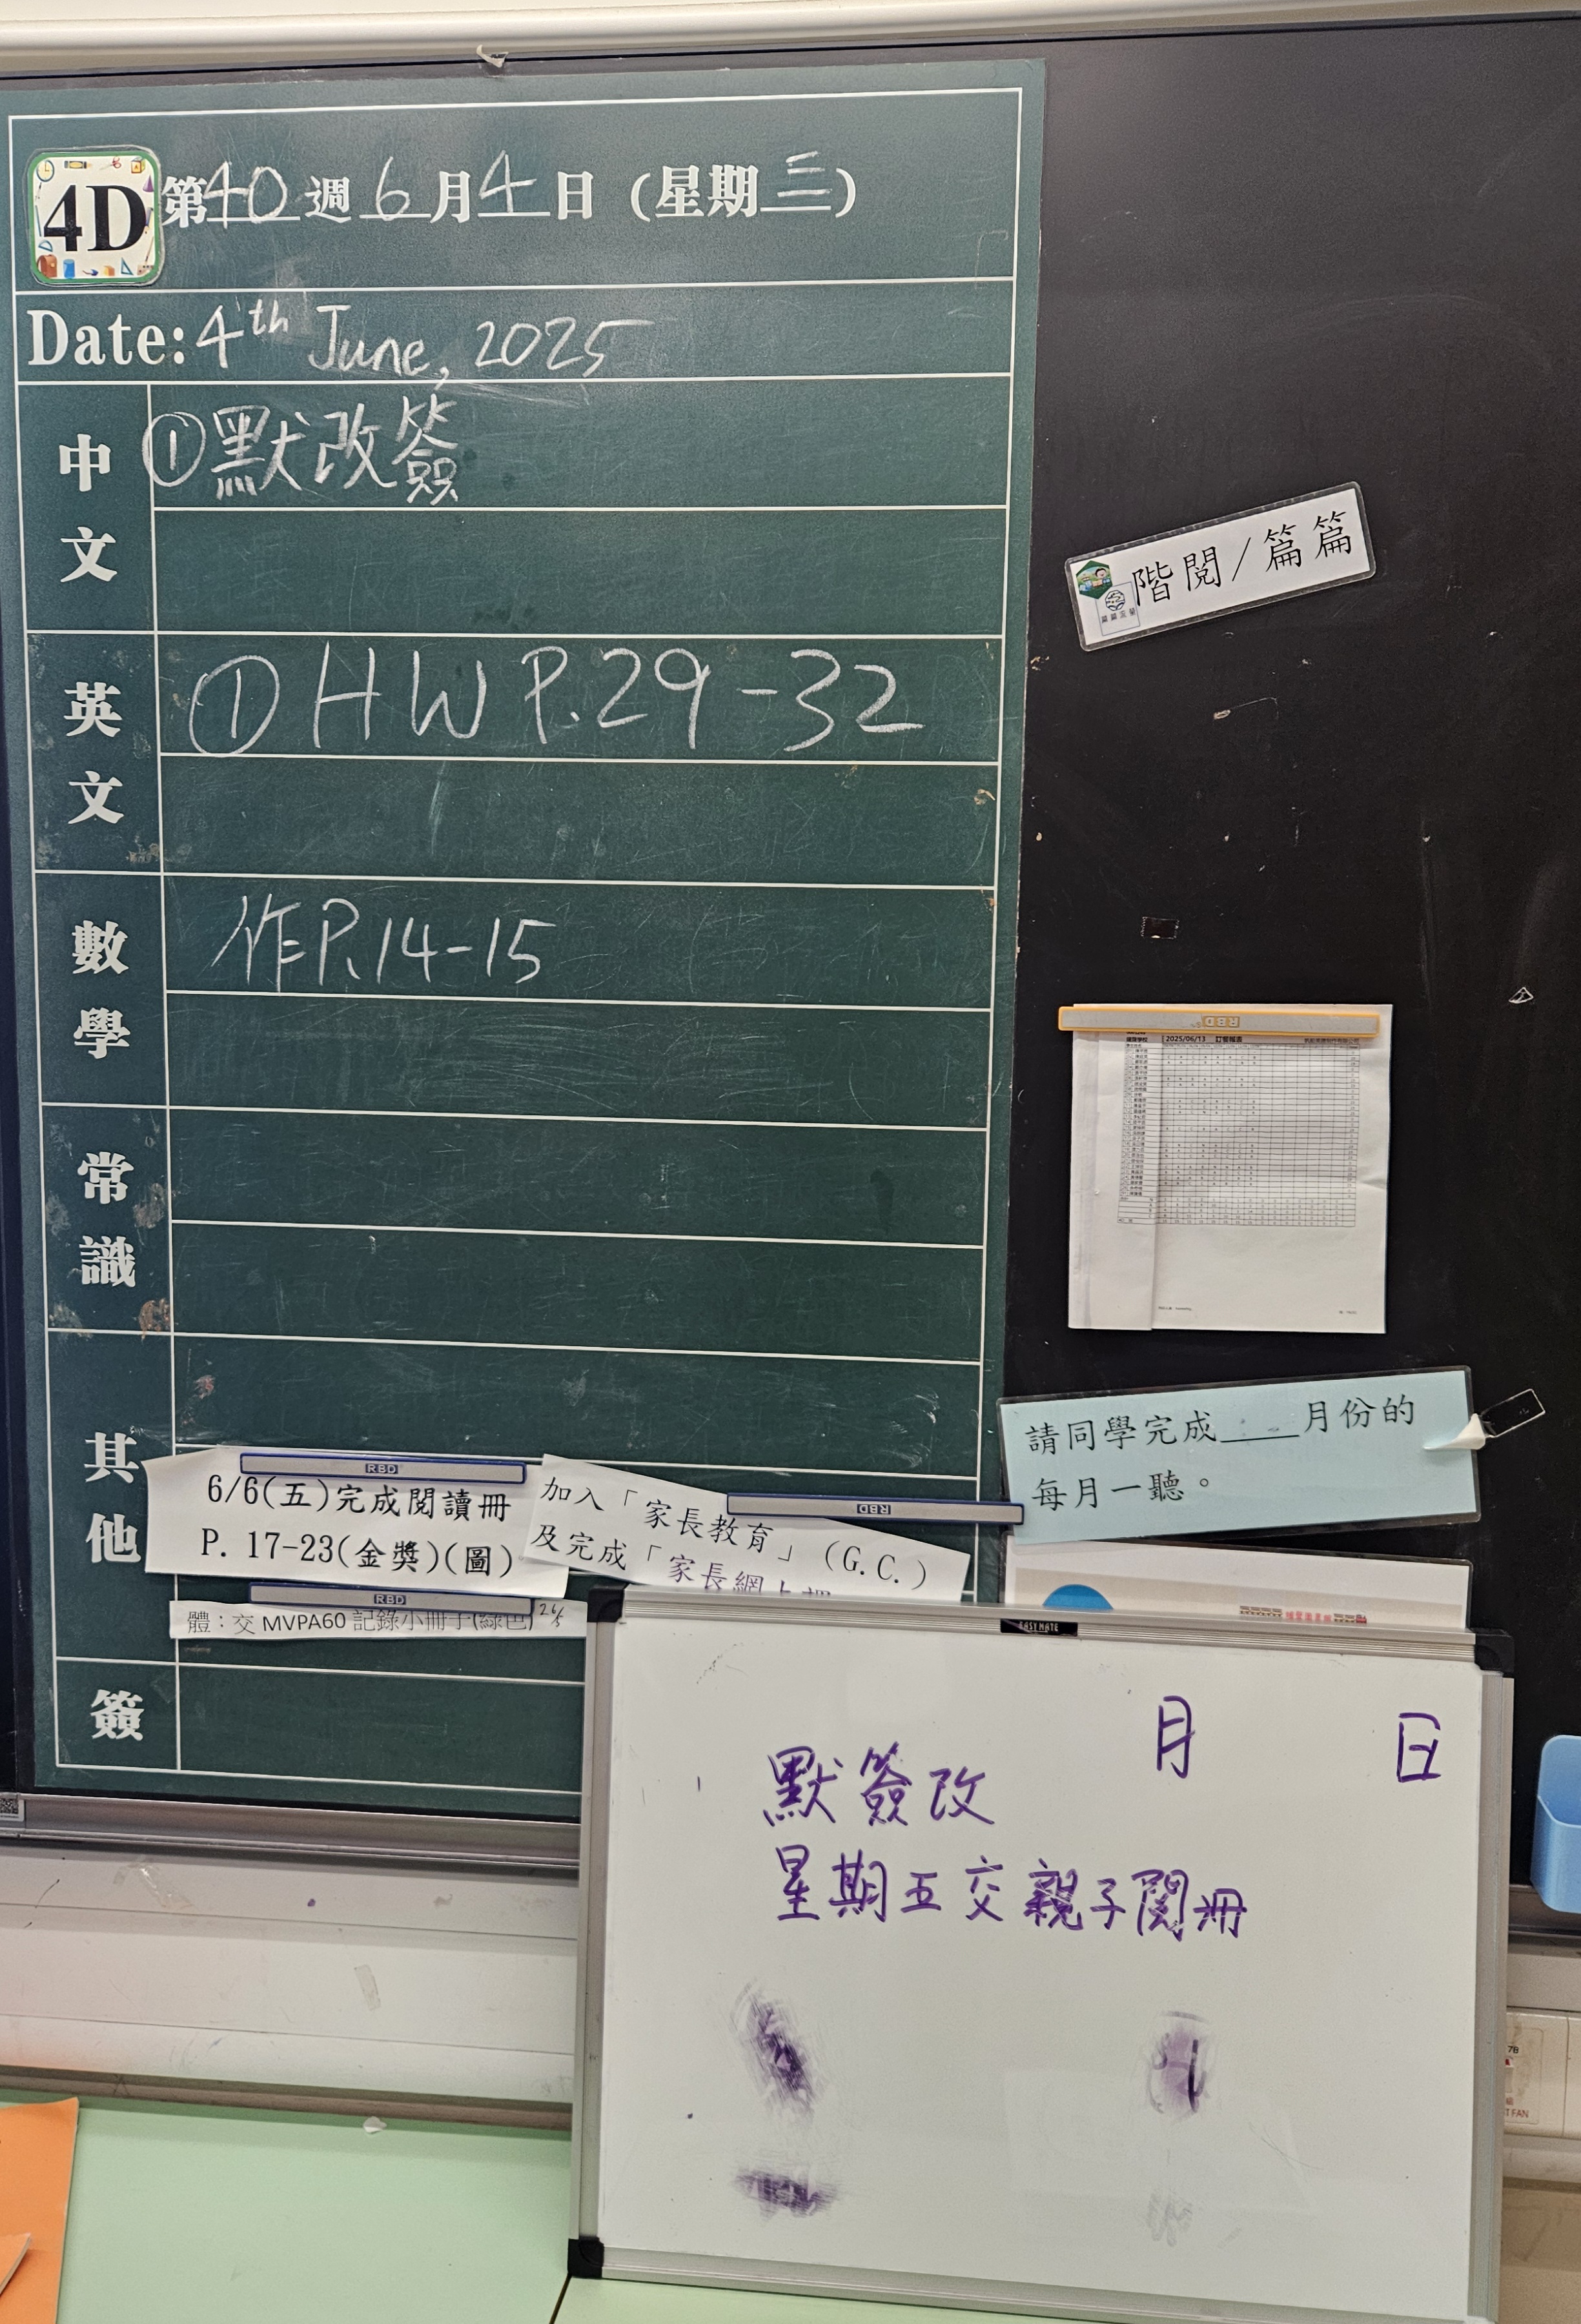 4D 第40週6月4日(星期三)
Date: 4th June, 2025
中文
①默改簽
英文
①HW P.29-32
數學
作P.14-15
常識
其他
6/6(五)完成閱讀冊
P. 17-23(金獎)(圖)
加入「家長教育」(G.C.)
及完成「家長網上課
體：交 MVPA60 記錄小冊子(綠色) 26/5
簽
階閱/篇篇
RBD
2025/06/13 訂餐報表
請同學完成____月份的
每月一聽。
RBD
RBD
RBD
EASY MATE
月 日
默簽改
星期五交親子閱冊